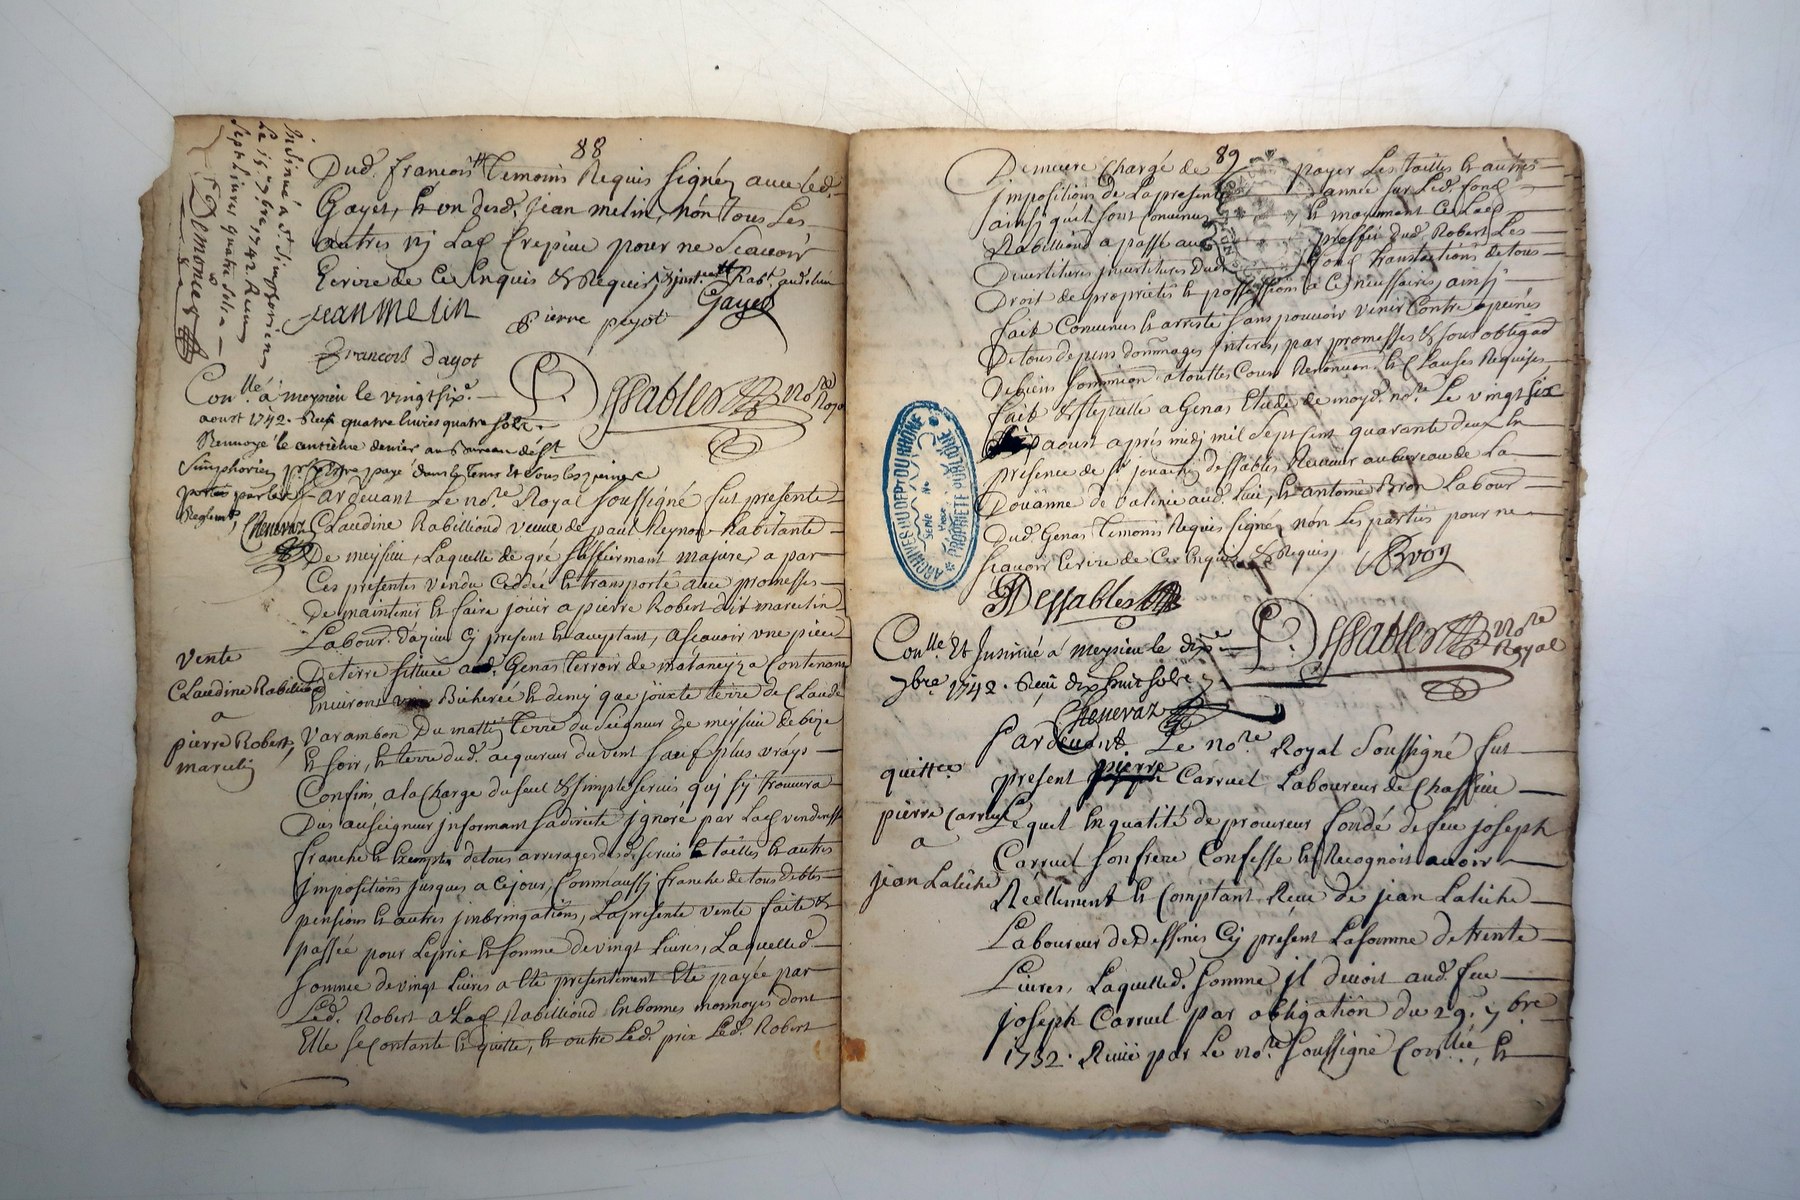 88
Dud. françois temoins Requis signéz avec led.
Gayet, et un desd. jean melin, nón tous Les
autres nj Lad. Crepieu pour ne Scavoir
Ecrire de Ce Enquis & Requis,
jean melin
pierre payot
Gayet
françois dagot
P. Dessables No.re Royal
insinué a St. Simphorien
Le 15. 7bre 1742. Receu
sept livres quatre sols
Demonceg
Con.llé á meyzieu le vingt six.e
aoust 1742. Receu quatre livres quatre sols.
Renvoyé le centième denier au Bureau de St
Simphorien pour être payé dans le tems et sous les peines
portées par les
Reglemts,
Chenevaz
Pardevant Le no.re Royal soussigné fut presente
Claudine Rabilloud veuve de paul Reynon habitante
De meyssieu, Laquelle de gré se affirmant majure, a par
Ces presentes vendu Ceddé et transporté avec promesses
De maintenir et faire jouir a pierre Robert dit marcelin
Labour. d'azieu Cy present et acceptant, ascavoir une piece
De terre sittuée aud. Genas terroir de mataneyza Contenant
Environ une Bicherée et demy que jouxte terre de Claude
Varambon Du mattin, terre du seigneur de meyssieu de bize
et soir, et terre dud. acquereur du vent sauf plus vrays
Confins, a la Charge du seul & simple servis quj sy trouvera
Dus au seigneur jnformant sa directe jgnoré par Lad. venderesse
franche et Exempte de tous arrerages des d. servis et tailles et autres
jmpositions jusques a Ce jour, Comm'aussy franche de tous debtes
pensions et autres jmbringations, La presente vente faite &
passée pour Le prix et somme de vingt Livres, Laquelle d.
somme de vingt Livres a Eté presentement Eté payée par
Led. Robert a Lad. Rabilloud En bonnes monnoyes dont
Elle se Contante et quitte, et outre Led. prix Led. Robert
vente
Claudine Rabilloud
a
pierre Robert,
marcelin
89
Demeure Chargé de payer Les tailles et autres
jmpositions de La presente année sur Led. fond
ainsy quil sont convenus, et moyennant Ce Lad.
Rabilloud a passé au proffit dud. Robert Les
Devestitures jnvestitures Dud. fond translations de tous
Droit de proprietés et possessions a Ce necessaires, ainsy
fait Convenus et arresté sans pouvoir venir Contre a peines
De tous depens dommages jnterets, par promesses & sous obligaõ
De biens soummions a touttes Cours Renonciaõ. et Clauses Requises
fait & stipullé a Genas Etude de moyd. no.re Le vingt six
aoust aprés midj mil sept Cent quarante deux En
presence de sr. joachin dessables Receveur au bureau de La
Douänne de valence aud. Lieu, et antoine Bron Labour
Dud. Genas temoins Requis signéz nón Les parties pour ne
scavoir Ecrire de Ce Enquis & Requis,
Bron
JDessables
P. Dessables No.re Royal
Con.llé Et Insinué á meyzieu le dix.e
7bre 1742. Receu dix huit sols
Chenevaz
Pardevant Le no.re Royal soussigné fut
present pierre Carruel Laboureur de Chassieu
Lequel En qualité de procureur fondé de feu joseph
Carruel son frere Confesse et Recognoit avoir
Réellement et Comptant Receu de jean Laliche
Laboureur de Dessines Cy present La somme de trente
Livres, Laquelle d. somme jl devoit aud. feu
joseph Carruel par obligation du 29.e 7bre
1732. Receüe par Le no.re soussigné Con.llée, et
quittce
pierre Carruel
a
jean Laliche
ARCHIVES DU DÉPT DU RHÔNE
SERIE No
PROPRIÉTÉ PUBLIQUE